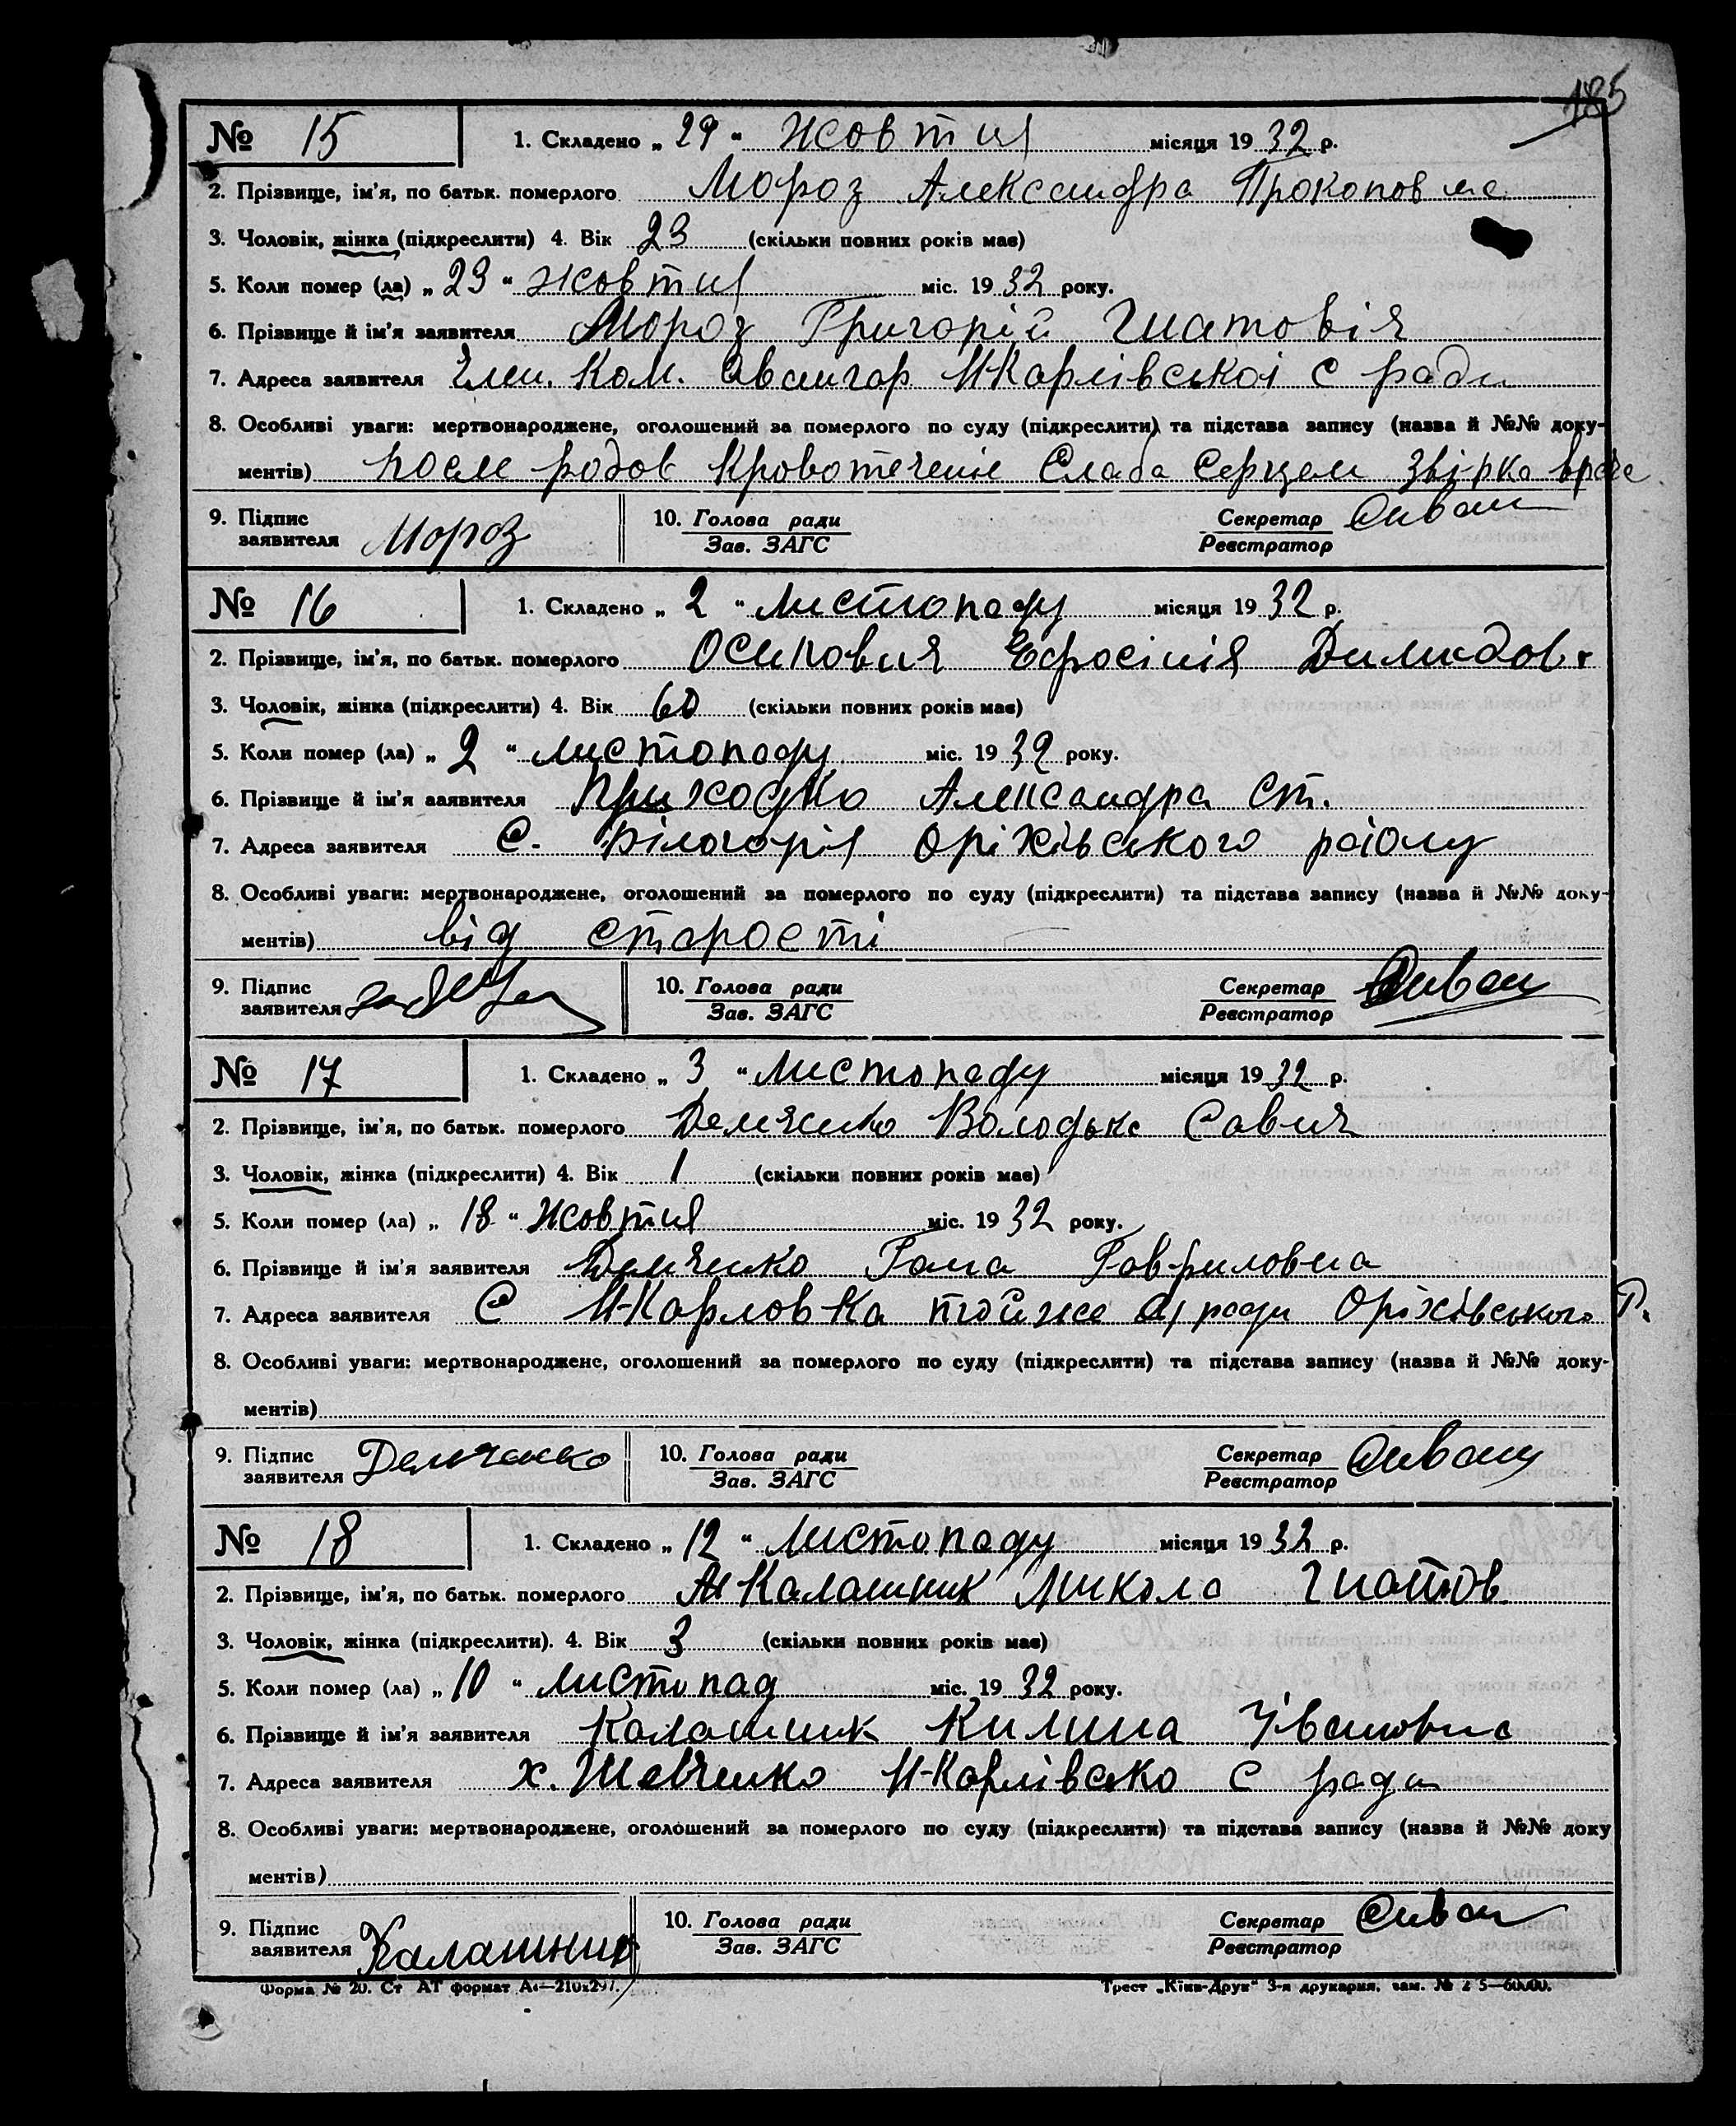 185
№ 15 1. Складено „ 29 " жовтня місяця 1932 р.
2. Прізвище, ім'я, по батьк. померлого Мороз Александра Прокоповна
3. Чоловік, жінка (підкреслити) 4. Вік 23 (скільки повних років має)
5. Коли помер (ла) „ 23 " жовтня міс. 1932 року.
6. Прізвище й ім'я заявителя Мороз Григорій Гнатовіч
7. Адреса заявителя Член. Ком. Авангар Н-Карлівської с ради
8. Особливі уваги: мертвонароджене, оголошений за померлого по суду (підкреслити) та підстава запису (назва й №№ доку-
ментів) после родов Кровотеченіе Слаба Серцем
9. Підпис заявителя Мороз 10. Голова ради Зав. ЗАГС Секретар Реєстратор
№ 16 1. Складено „ 2 " листопаду місяця 1932 р.
2. Прізвище, ім'я, по батьк. померлого Осипович Єфросінія
3. Чоловік, жінка (підкреслити) 4. Вік 60 (скільки повних років має)
5. Коли помер (ла) „ 2 " листопаду міс. 1932 року.
6. Прізвище й ім'я заявителя Приходько Александра Ст.
7. Адреса заявителя С. Білогорія Оріхівського раіону
8. Особливі уваги: мертвонароджене, оголошений за померлого по суду (підкреслити) та підстава запису (назва й №№ доку-
ментів) від старості
9. Підпис заявителя 10. Голова ради Зав. ЗАГС Секретар Реєстратор
№ 17 1. Складено „ 3 " Листопаду місяця 1932 р.
2. Прізвище, ім'я, по батьк. померлого Демченко Володька Савич
3. Чоловік, жінка (підкреслити) 4. Вік 1 (скільки повних років має)
5. Коли помер (ла) „ 18 " жовтня міс. 1932 року.
6. Прізвище й ім'я заявителя Демченко Гана Гавриловна
7. Адреса заявителя С Н-Карловка тойже с/ ради Оріхівського Р.
8. Особливі уваги: мертвонароджене, оголошений за померлого по суду (підкреслити) та підстава запису (назва й №№ доку-
ментів)
9. Підпис заявителя Демченко 10. Голова ради Зав. ЗАГС Секретар Реєстратор
№ 18 1. Складено „ 12 " Листопаду місяця 1932 р.
2. Прізвище, ім'я, по батьк. померлого Калашник Микола Гнатов
3. Чоловік, жінка (підкреслити). 4. Вік 3 (скільки повних років має)
5. Коли помер (ла) „ 10 " листопад міс. 1932 року.
6. Прізвище й ім'я заявителя Калашник Килина Івановна
7. Адреса заявителя х. Шевченко Н-Карлівсько с ради
8. Особливі уваги: мертвонароджене, оголошений за померлого по суду (підкреслити) та підстава запису (назва й №№ доку
ментів)
9. Підпис заявителя Калашник 10. Голова ради Зав. ЗАГС Секретар Реєстратор
Форма № 20. Ст АТ формат А4—210х297. Трест „Київ-Друк" 3-я друкарня, зам. №